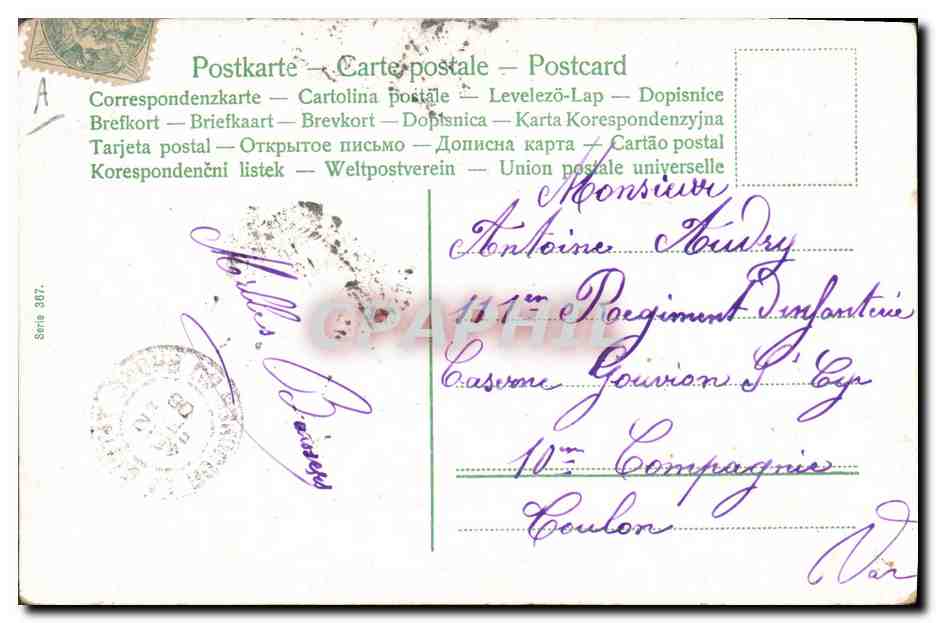 Postkarte – Carte postale – Postcard
Correspondenzkarte – Cartolina postale – Levelezö-Lap – Dopisnice
Brefkort – Briefkaart – Brevkort – Dopisnica – Karta Korespondenzyjna
Tarjeta postal – Открытое письмо – Дописна карта – Cartão postal
Korespondenčni listek – Weltpostverein – Union postale universelle
A
Serie 367.
Milles Baisers
Monsieur
Antoine Audry
111en Regiment D'infanterie
Caserne Gouvion St Cyr
10me Compagnie
Toulon
Var
CPAPHIL